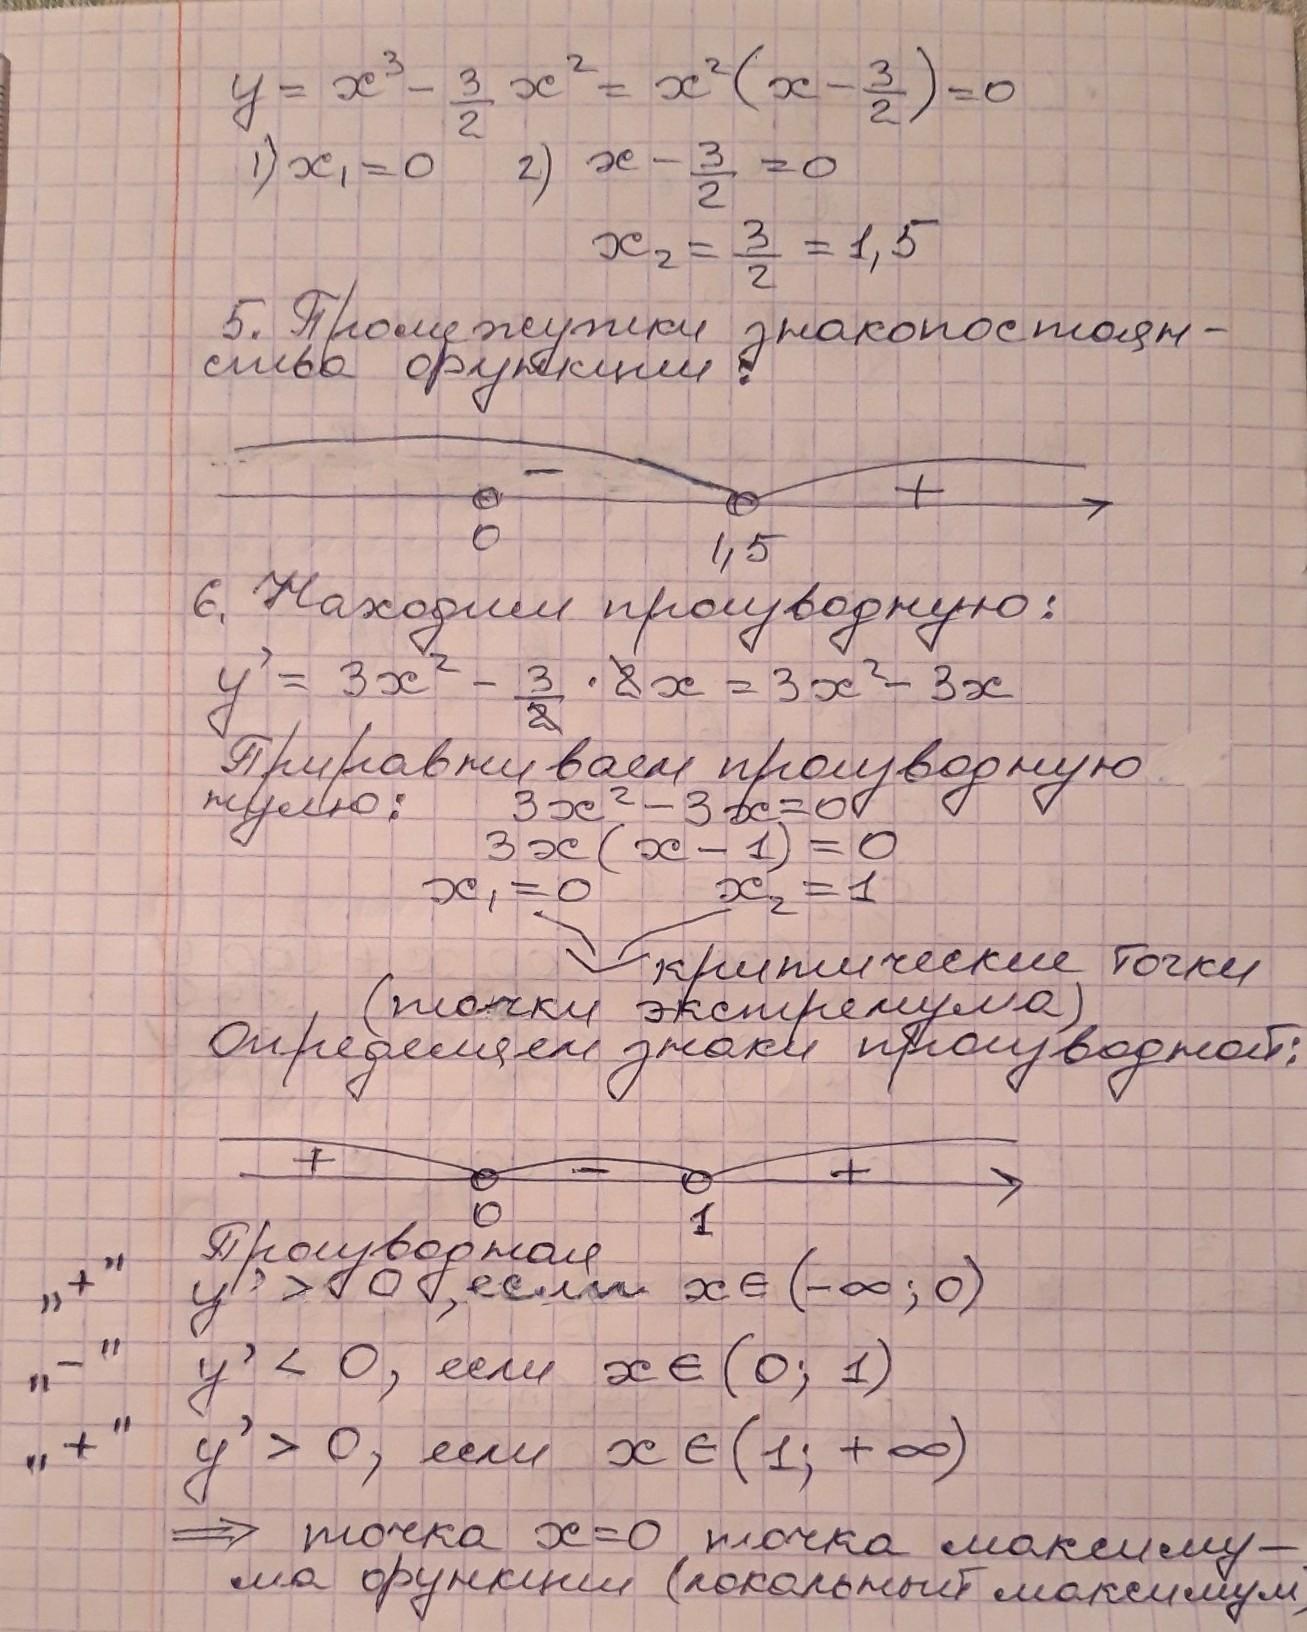 y = x³ - 3/2 x² = x²(x - 3/2) = 0
1) x₁ = 0 2) x - 3/2 = 0
x₂ = 3/2 = 1,5
5. Промежутки знакопостоян-
ства функции:
- +
0 1,5
6. Находим производную:
y' = 3x² - 3/2 · 2x = 3x² - 3x
Приравниваем производную
нулю: 3x² - 3x = 0
3x(x - 1) = 0
x₁ = 0 x₂ = 1
критические точки
(точки экстремума)
Определяем знаки производной:
+ - +
0 1
Производная
„+" y' > 0, если x ∈ (-∞; 0)
„-" y' < 0, если x ∈ (0; 1)
„+" y' > 0, если x ∈ (1; +∞)
⇒ точка x=0 точка максиму-
ма функции (локальный максимум)